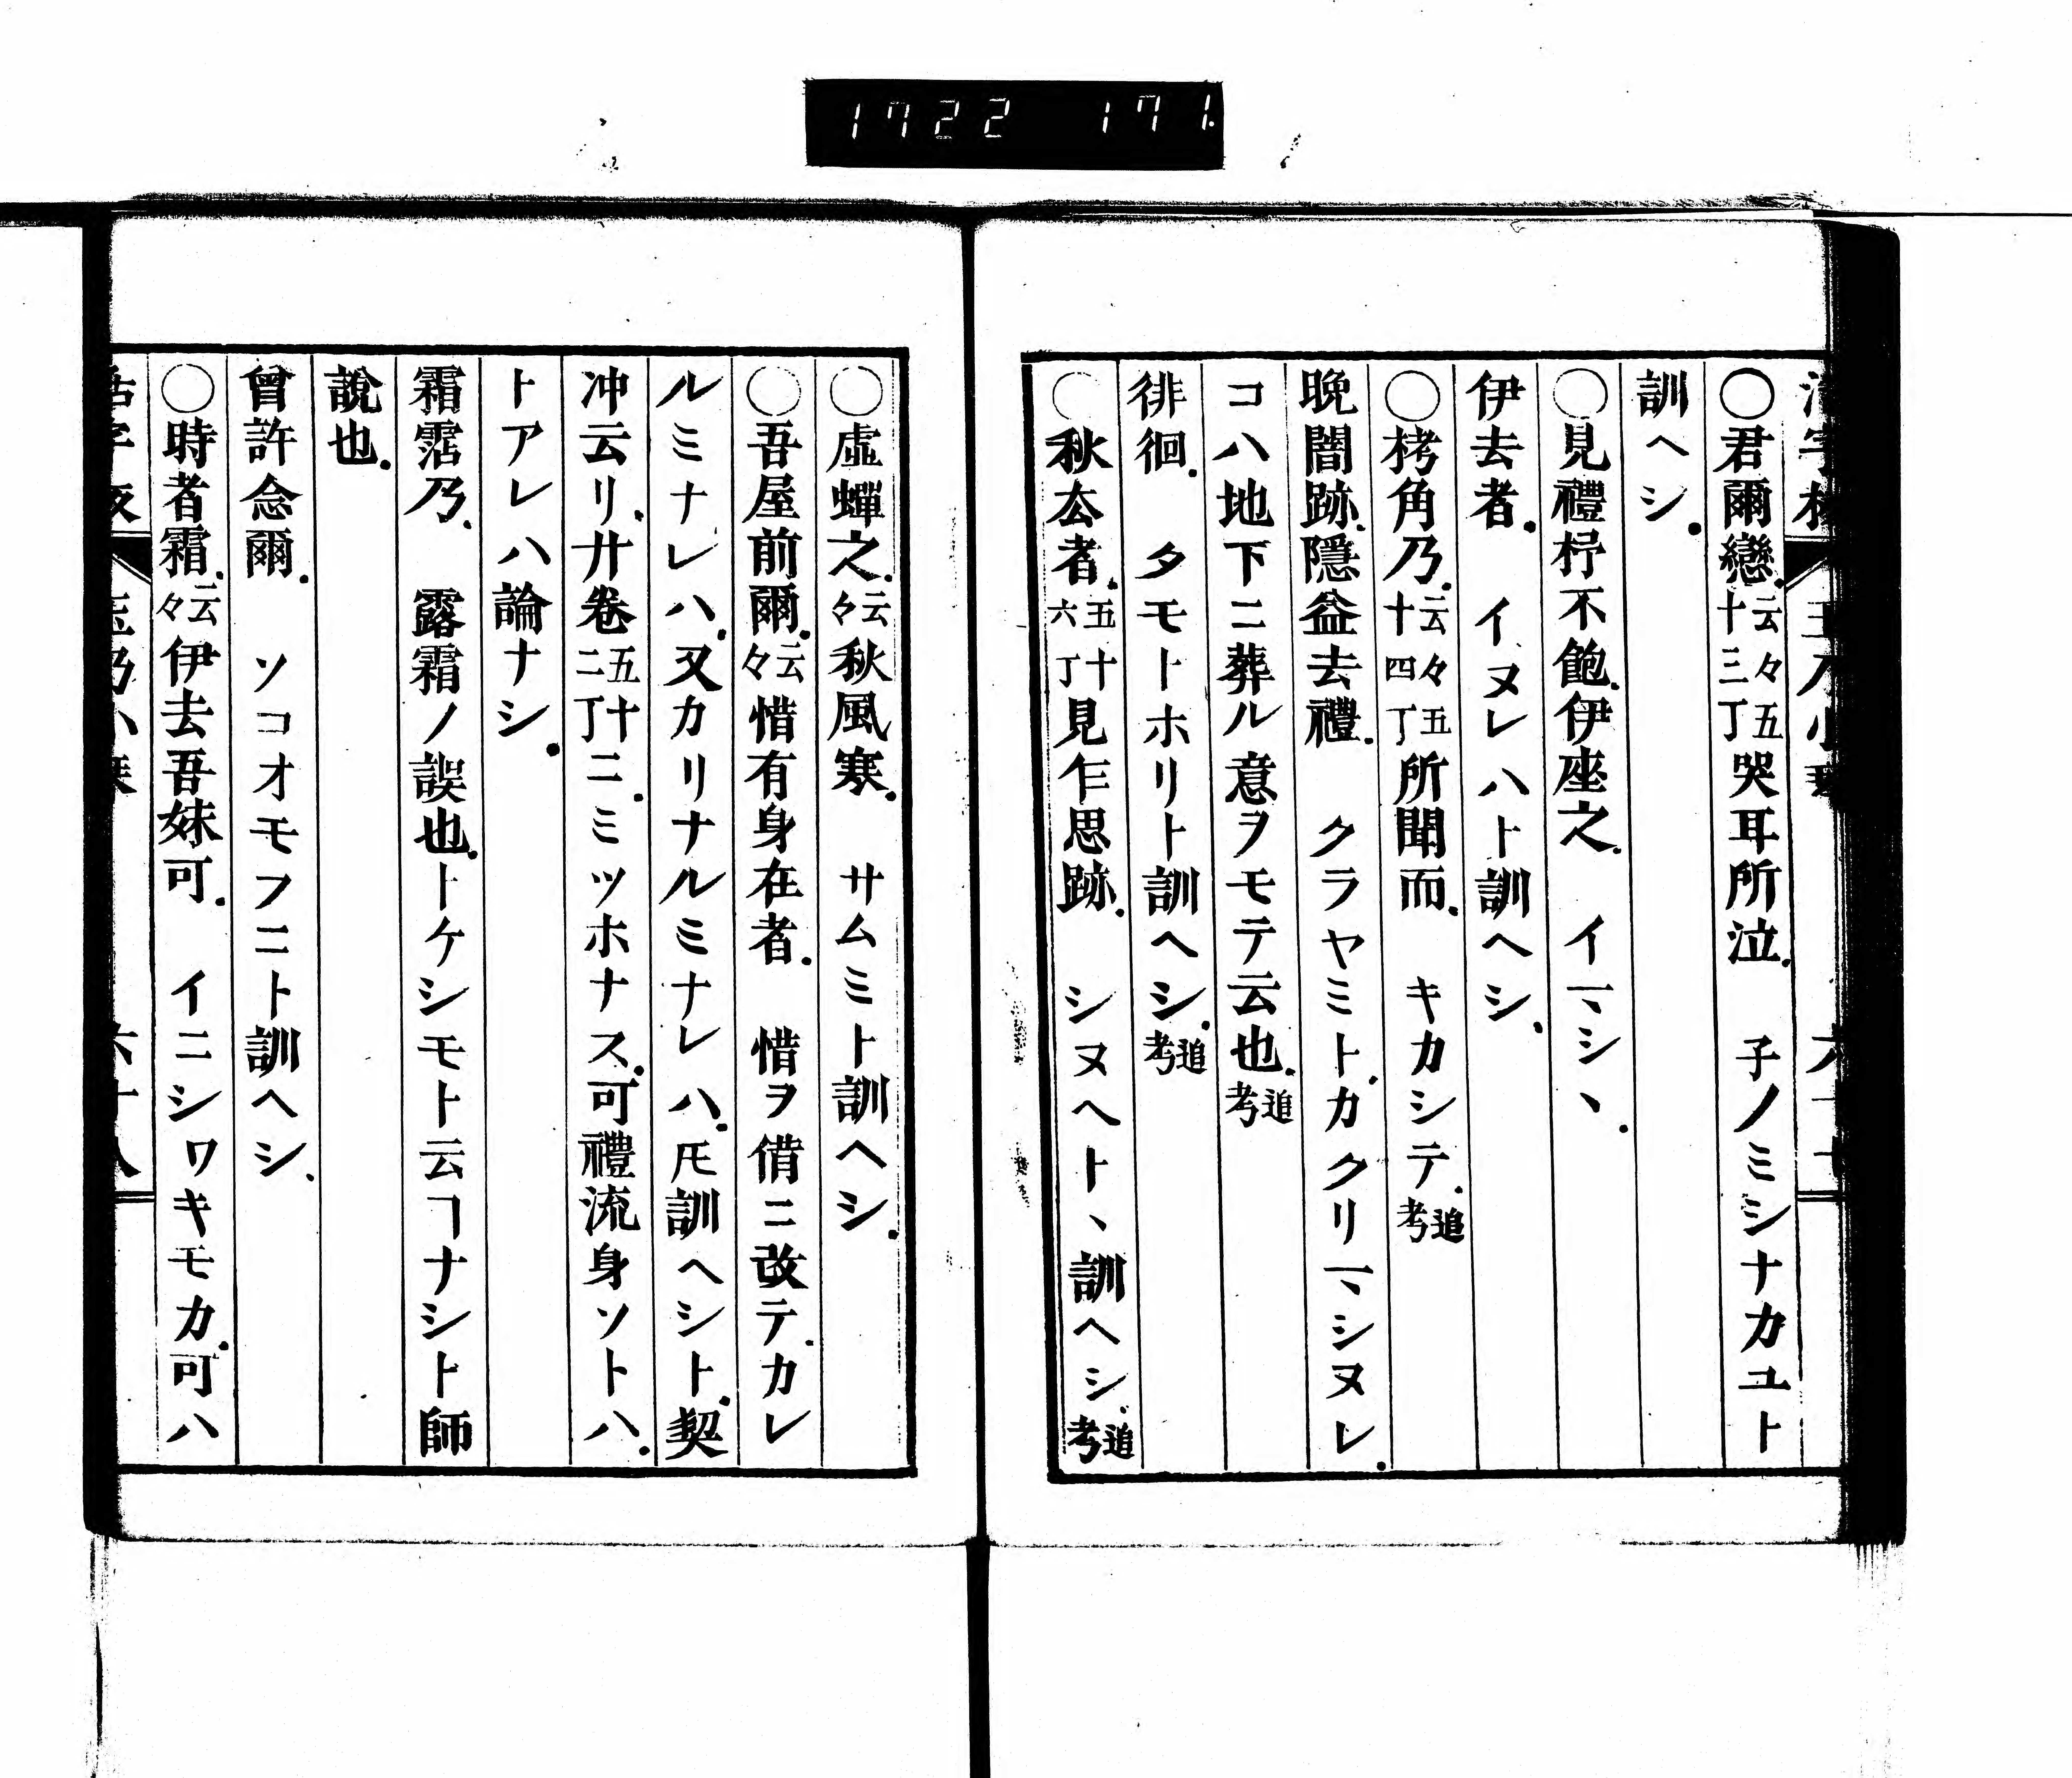 1722 171
○君爾戀云々五十三丁哭耳所泣 子ノミシナカユト
訓ヘシ
○見禮杼不飽伊座之 イマシヽ
伊去者 イヌレハト訓ヘシ
○栲角乃云々五十四丁所聞而 キカシテ追考
晩闇跡隱益去禮 クラヤミトカクリマシヌレ
コハ地下ニ葬ル意ヲモテ云也追考
徘徊 タモトホリト訓ヘシ追考
○秋去者五十六丁見乍思跡 シヌヘトヽ訓ヘシ追考
○虛蟬之云々秋風寒 サムミト訓ヘシ
○吾屋前爾云々惜有身在者 惜ヲ借ニ改テカレ
ルミナレハ又カリナルミナレハ𪜈訓ヘシト契
冲云リ廿卷五十二丁ニミツホナス可禮流身ソトハ
トアレハ論ナシ
霜霑乃 露霜ノ誤也トケシモト云ヿナシト師
說也
曾許念爾 ソコオモフニト訓ヘシ
○時者霜云々伊去吾妹可 イニシワキモカ可ハ